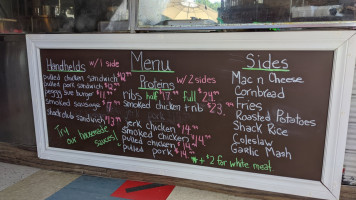 Handhelds w/1 side
pulled chicken sandwich
pulled pork sandwich
veggie burger
Smoked sausage
Shack club sandwich
Try our homemade sauces!
Menu
Proteins w/2 sides
ribs half full
Smoked chicken + rib
jerk chicken $14
Smoked chicken $14
pulled chicken $14
pulled pork $14
+ $2 for white meat
Sides
Mac n Cheese
Cornbread
Fries
Roasted Potatoes
Shack Rice
Coleslaw
Garlic Mash